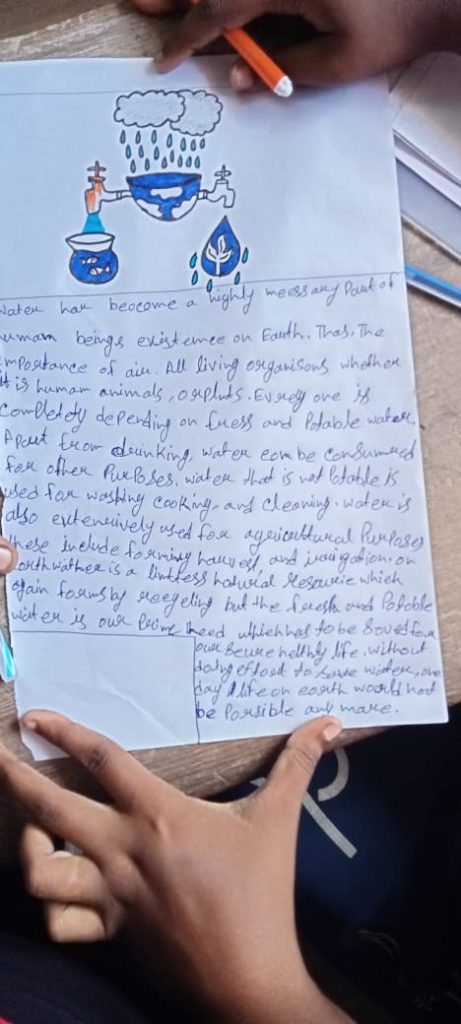 Water has beocome a highly meessary Part of
human beings existemce on Earth. Thas, The
importance of air. All living organisons whether
it is human animals, orpluts. Everey one is
Completely depending on fress and Potable water.
Apart from drinking, water combe consumred
for other Purposes. water that is not Potable is
used for washing cooking, and cleoning. water is
also extensively used for agricultural Purposes
these include forming harvest, and irrigation. on
earth wather is a lintless natural Resource which
again forms by recegeling but the fresh and Potable
water is our Prime need which has to be Soved for
our Seure helthly life. without
doing effort to save water, one
day life on earth would not
be Possible any mare.